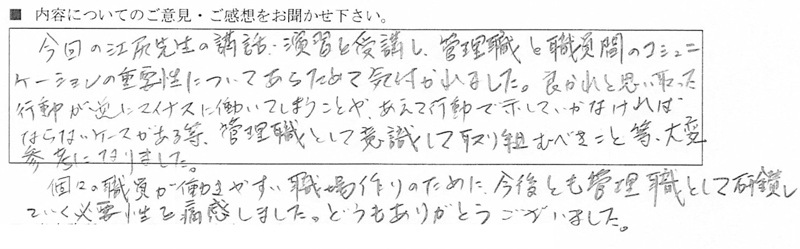 ■ 内容についてのご意見・ご感想をお聞かせ下さい。
今回の江原先生の講話、演習を受講し、管理職と職員間のコミュニ
ケーションの重要性についてあらためて気付かれました。良かれと思い取った
行動が逆にマイナスに働いてしまうことや、あえて行動で示していかなければ
ならないケースがある等、管理職として意識して取り組むべきこと等、大変
参考になりました。
個々の職員が働きやすい職場作りのために、今後とも管理職として研鑽し
ていく必要性を痛感しました。どうもありがとうございました。